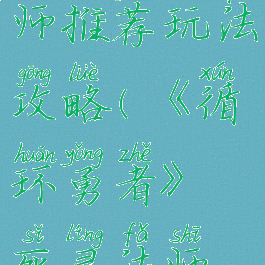 师推荐玩法
gōng lüè xún
攻略(《循
huán yǒng zhě
环勇者》
sǐ líng fǎ shī
死灵法师